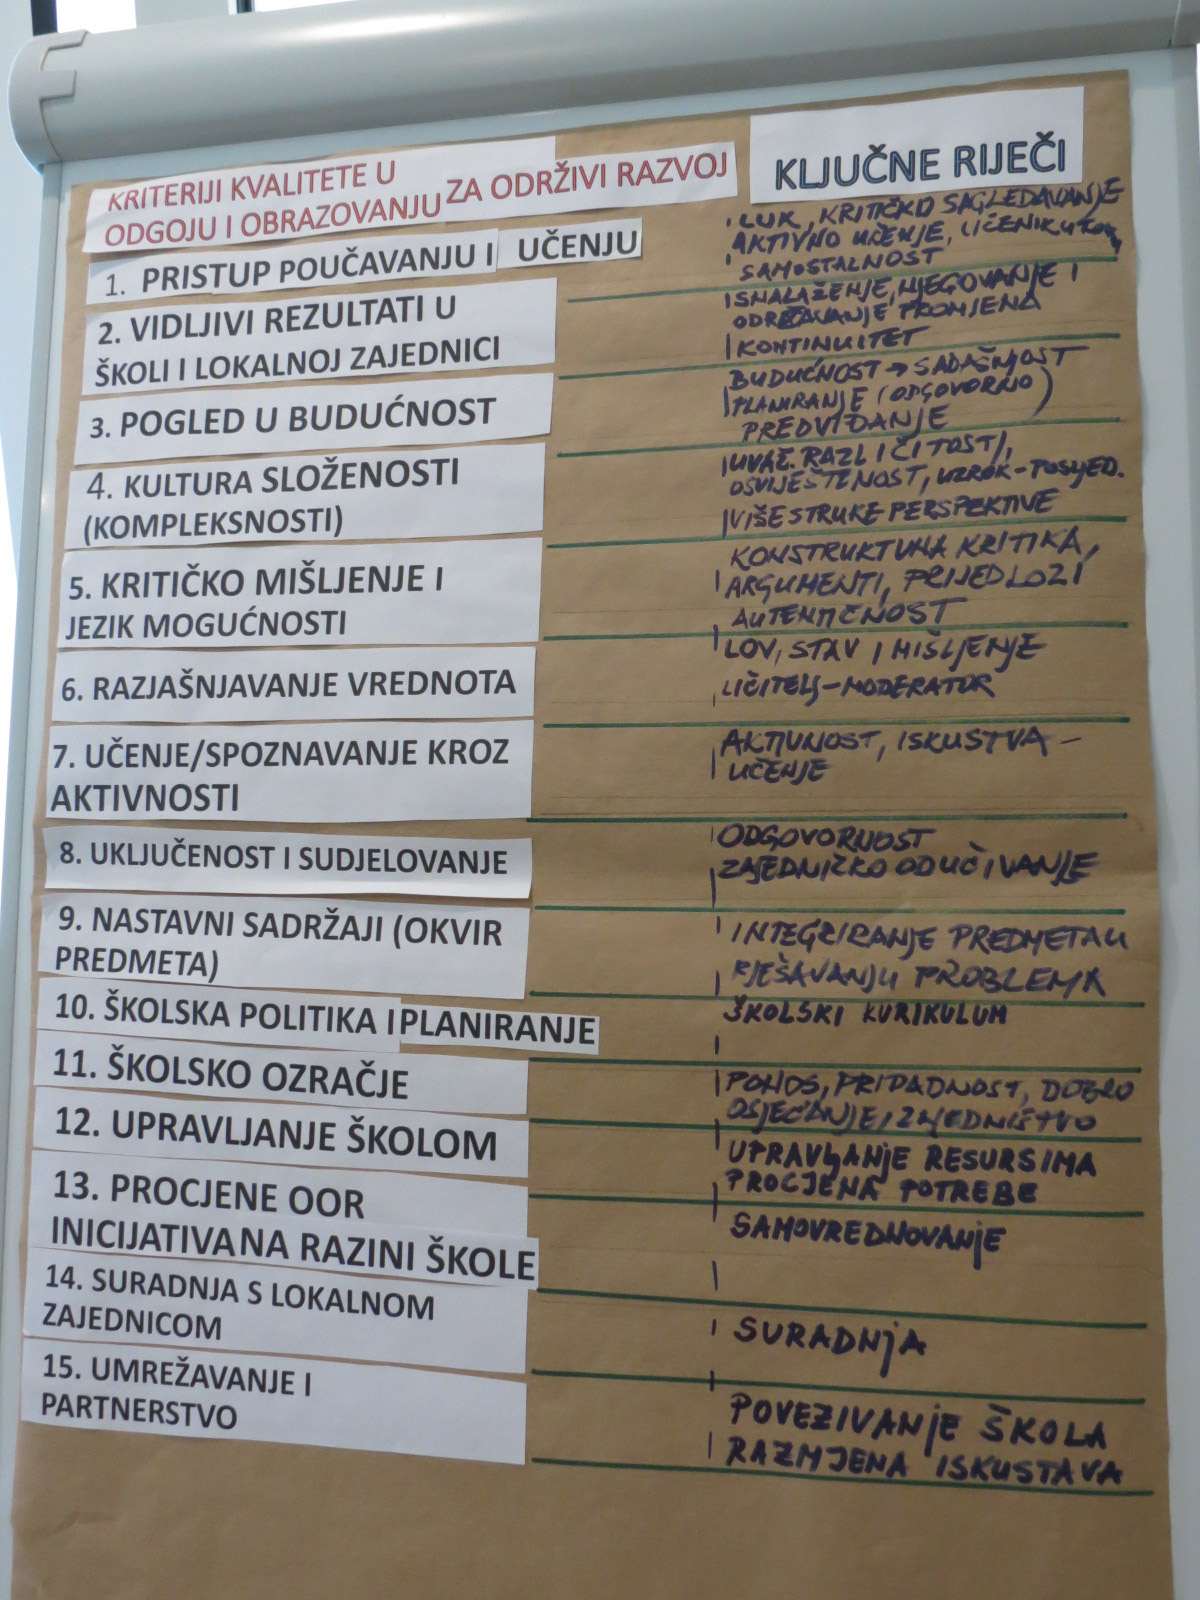 KRITERIJI KVALITETE U
ODGOJU I OBRAZOVANJU ZA ODRŽIVI RAZVOJ
KLJUČNE RIJEČI
1. PRISTUP POUČAVANJU I UČENJU
KRITIČKO SAGLEDAVANJE
AKTIVNO UČENJE,
SAMOSTALNOST
2. VIDLJIVI REZULTATI U
ŠKOLI I LOKALNOJ ZAJEDNICI
SNALAŽENJE, NJEGOVANJE I
ODRŽAVANJE PROMJENA
KONTINUITET
3. POGLED U BUDUĆNOST
BUDUĆNOST → SADAŠNJOST
PLANIRANJE (ODGOVORNO)
PREDVIĐANJE
4. KULTURA SLOŽENOSTI
(KOMPLEKSNOSTI)
UVAŽ. RAZLIČITOSTI,
OSVIJEŠTENOST, UZROK-POSLJED.
VIŠESTRUKE PERSPEKTIVE
5. KRITIČKO MIŠLJENJE I
JEZIK MOGUĆNOSTI
KONSTRUKTIVNA KRITIKA,
ARGUMENTI, PRIJEDLOZI
AUTENTIČNOST
6. RAZJAŠNJAVANJE VREDNOTA
STAV I MIŠLJENJE
UČITELJ-MODERATOR
7. UČENJE/SPOZNAVANJE KROZ
AKTIVNOSTI
AKTIVNOST, ISKUSTVA -
UČENJE
8. UKLJUČENOST I SUDJELOVANJE
ODGOVORNOST
ZAJEDNIČKO ODUČIVANJE
9. NASTAVNI SADRŽAJI (OKVIR
PREDMETA)
INTEGRIRANJE PREDMETA U
RJEŠAVANJU PROBLEMA
10. ŠKOLSKA POLITIKA I PLANIRANJE
ŠKOLSKI KURIKULUM
11. ŠKOLSKO OZRAČJE
PONOS, PRIPADNOST, DOBRO
OSJEĆANJE, ZAJEDNIŠTVO
12. UPRAVLJANJE ŠKOLOM
UPRAVLJANJE RESURSIMA
PROCJENA POTREBE
13. PROCJENE OOR
INICIJATIVA NA RAZINI ŠKOLE
SAMOVREDNOVANJE
14. SURADNJA S LOKALNOM
ZAJEDNICOM
SURADNJA
15. UMREŽAVANJE I
PARTNERSTVO
POVEZIVANJE ŠKOLA
RAZMJENA ISKUSTAVA